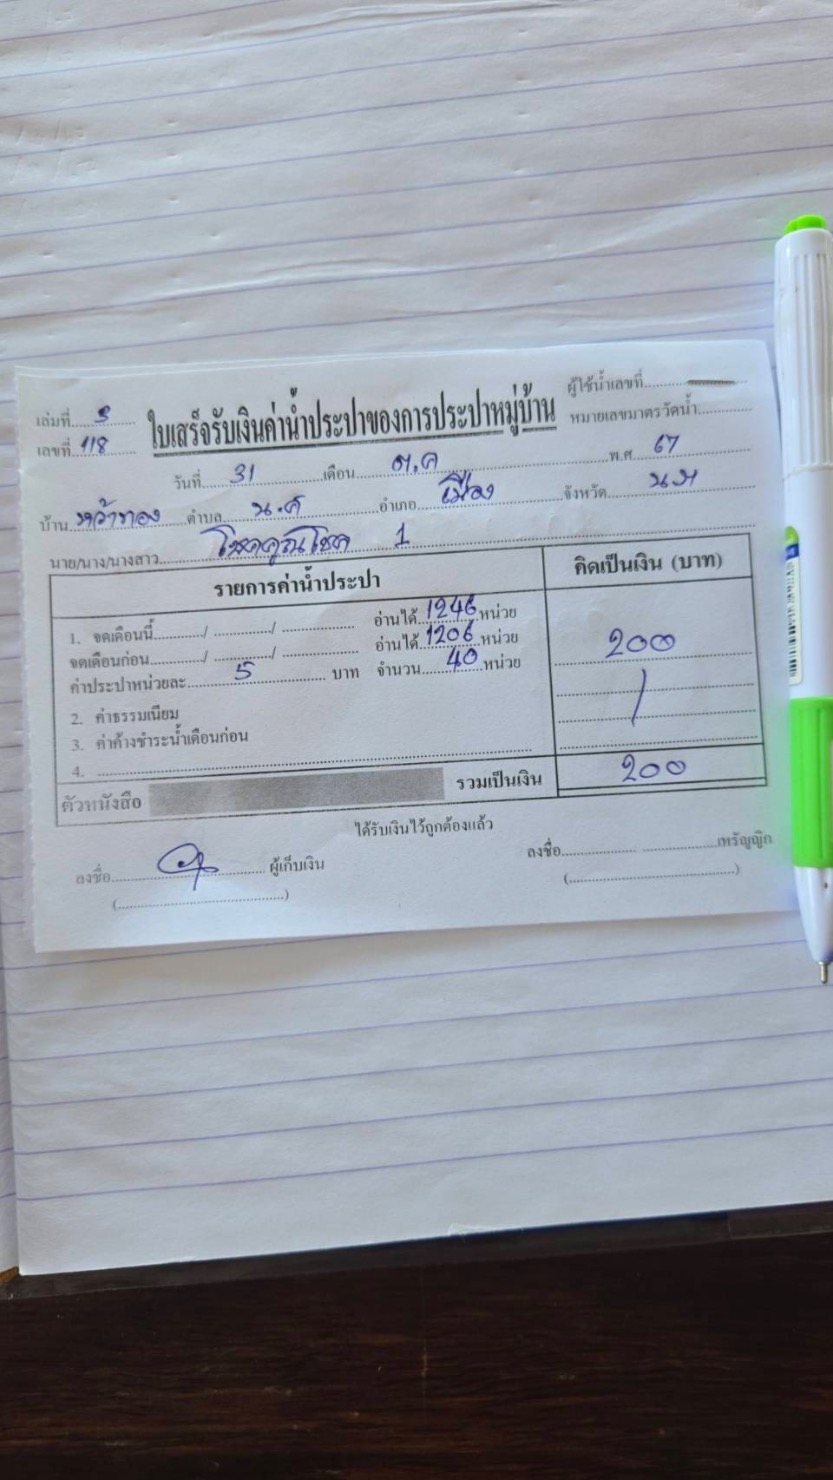 เล่มที่ 3 ใบเสร็จรับเงินค่าน้ำประปาของการประปาหมู่บ้าน ผู้ใช้น้ำเลขที่
เลขที่ 118 หมายเลขมาตรวัดน้ำ
วันที่ 31 เดือน ต.ค พ.ศ 67
บ้าน หว้าทอง ตำบล น.ค อำเภอ เมือง จังหวัด
นาย/นาง/นางสาว โชคคูณโชค 1
รายการค่าน้ำประปา คิดเป็นเงิน (บาท)
1. จดเดือนนี้ / / อ่านได้ 1246 หน่วย
จดเดือนก่อน / / อ่านได้ 1206 หน่วย 200
ค่าประปาหน่วยละ 5 บาท จำนวน 40 หน่วย
2. ค่าธรรมเนียม
3. ค่าค้างชำระน้ำเดือนก่อน
4.
ตัวหนังสือ รวมเป็นเงิน 200
ได้รับเงินไว้ถูกต้องแล้ว
ลงชื่อ ผู้เก็บเงิน ลงชื่อ เหรัญญิก
(..........) (..........)